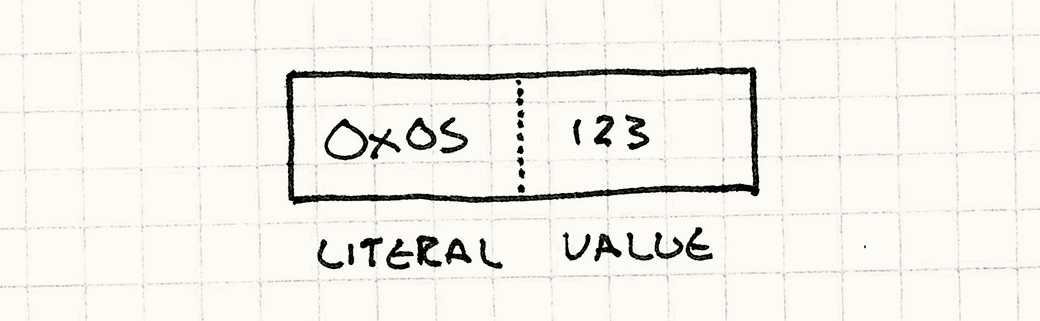 0x05 123
LITERAL VALUE